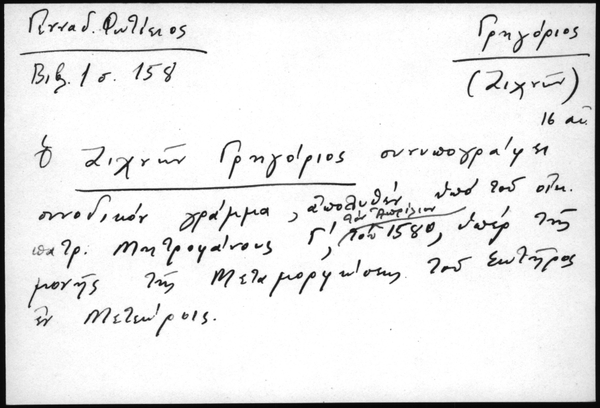 Γενναδ. Φωτίειος
Βιβ. 1 σ. 158
Γρηγόριος
(Ζιχνῶν)
16 αἰ.
Ὁ Ζιχνῶν Γρηγόριος συνυπογράφει
συνοδικόν γράμμα, ἀπολυθέν ὑπό τοῦ οἰκ.
τόν Ἀπρίλιον
πατρ. Μητροφάνους Γ', τοῦ 1580, ὑπέρ τῆς
μονῆς τῆς Μεταμορφώσεως τοῦ Σωτῆρος
ἐν Μετεώροις.